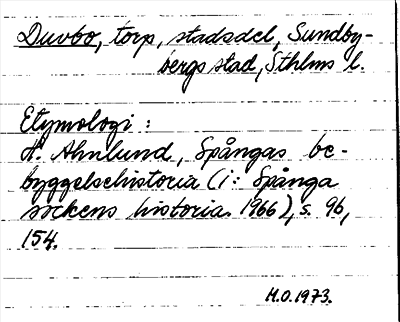 Duvbo, torp, stadsdel, Sundby-
bergs stad, Sthlms l.
Etymologi :
N. Ahnlund, Spångas be-
byggelsehistoria (i: Spånga
sockens historia. 1966), s. 96,
154.
M.O. 1973.